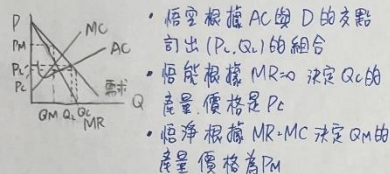 P
MC
AC
PM
PL
Pc
需求
QM QL Qc Q
MR
• 悟空根據 AC 與 D 的交點
訂出 (PL, QL) 的組合
• 悟能根據 MR=0 決定 Qc 的
產量, 價格是 Pc
• 悟淨根據 MR=MC 決定 QM 的
產量 價格為 PM